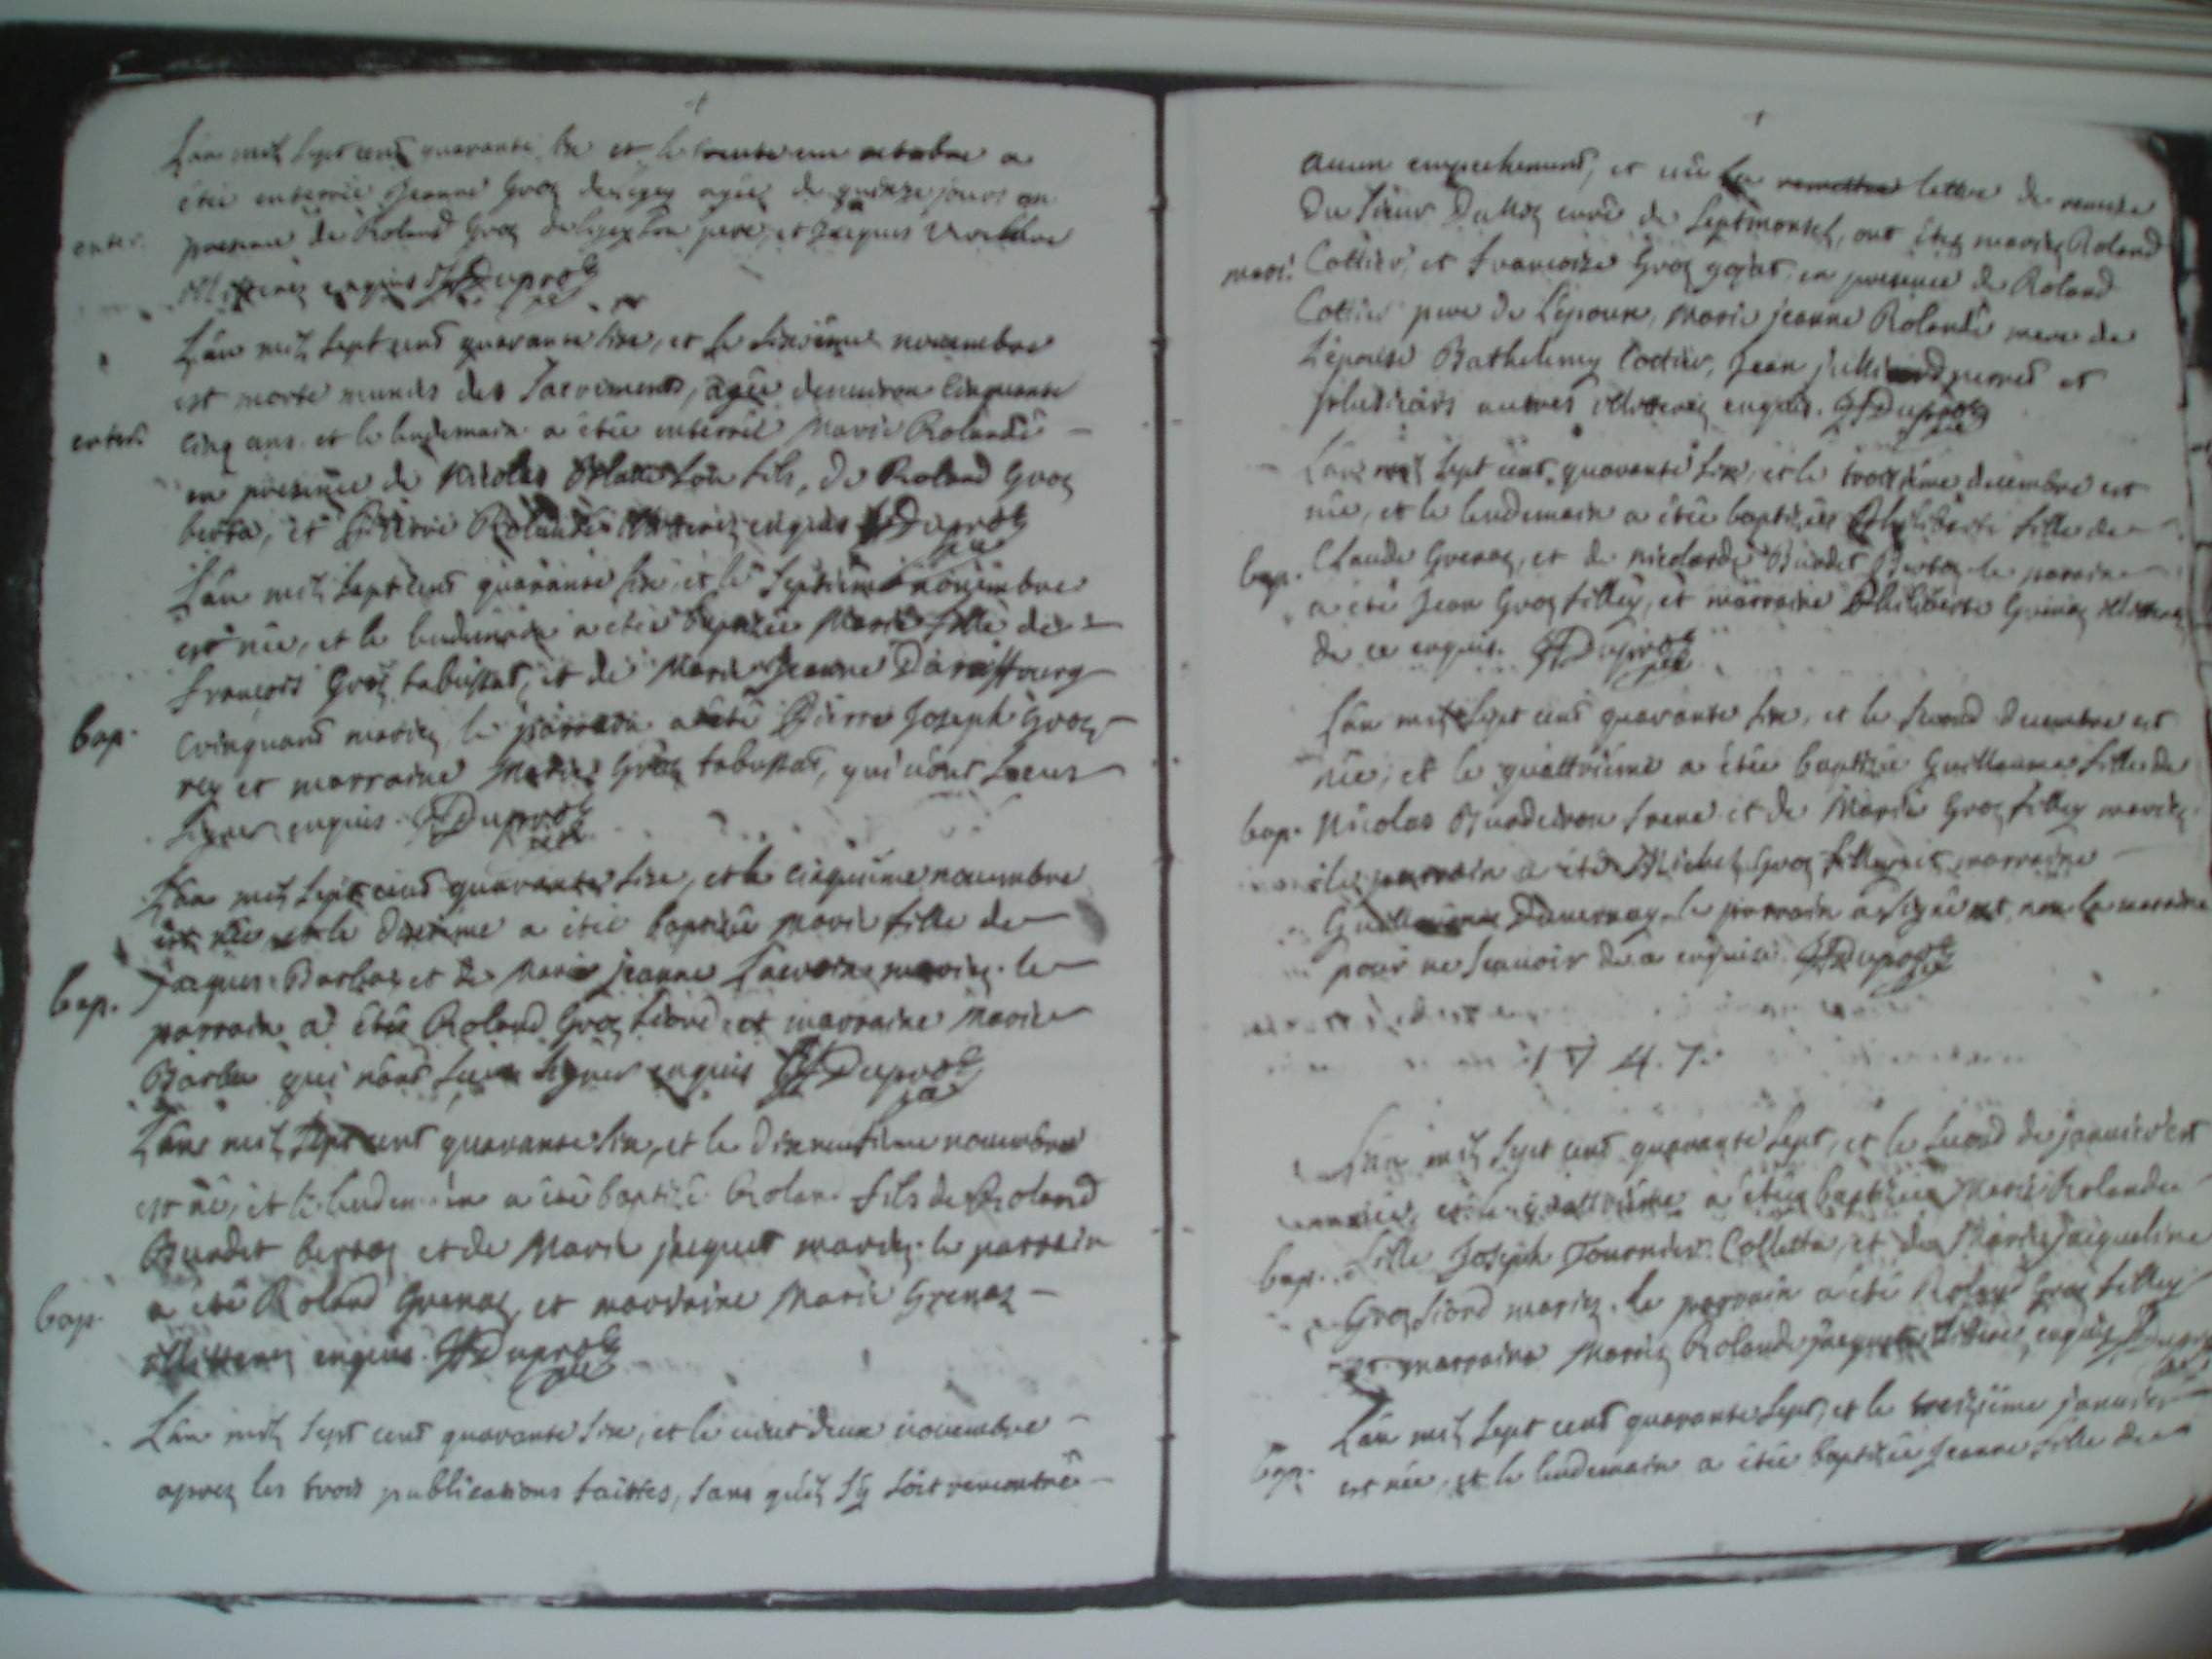 L'an mil sept cent quarante six et le trente un octobre a
étée enterrée Jeanne Groz agée de quinze jours en
enter. presence de Roland Groz son pere, et Jacques
illitterez enquis Duproz
L'an mil sept cent quarante six, et le sixieme novembre
est morte munies des Sacrements, agée denviron cinquante
enter. cinq ans et le lendemain a étée enterrée Marie Rolande
en presence de Nicolas son fils, de Roland Groz
et Pierre Rolande illitterez enquis Duproz
L'an mil sept cent quarante six, et le septieme novembre
est née, et le lendemain a étée baptizée Marie fille de
François Groz tabussat, et de Marie Jeanne Daraffourg
bap. mariez, le parrain a été Pierre Joseph Groz
rey et marraine Marie Groz tabussat, qui n'ont sceus
signer enquis. Duproz
L'an mil sept cent quarante six, et le cinquieme novembre
est née et le dixième a étée baptizée Marie fille de
bap. Jacques Barbaz et de Marie Jeanne mariez. le
parrain a étée Roland Groz siord et marraine Marie
Barba qui n'ont sceu signer enquis Duproz
L'an mil sept cent quarante six, et le dixneufieme novembre
est né, et le lendemain a été baptizé Rolan fils de Roland
Burdet bertoz et de Marie jacquet mariez. le parrain
bap. a été Roland Grenaz, et marraine Marie Grenaz
illitterez enquis. Duproz
L'an mil sept cent quarante six, et le vint deux novembre
aprez les trois publications faittes, sans quil sy soit rencontré
aucun empechement, et vûe la lettre de remise
du Sieur curé de Septmoncel, ont étez mariez Roland
mari. Cottier, et Françoize Groz gojat en presence de Roland
Cottier pere de L'epoux, Marie jeanne Rolande mere de
L'epouse Bathelemy Cottier, Jean et
plusieurs autres illitterez enquis. Duproz
L'an mil sept cent quarante six, et le troisième decembre est
née, et le lendemain a étée baptizée Philiberte fille de
bap. Claude Grenaz, et de Nicolarde Burdet Bertoz le parrain
a été Jean Groz filley, et marraine Philiberte Grenaz illitterez
de ce enquis. Duproz
L'an mil sept cent quarante six, et le second decembre est
née, et le quattrieme a étée baptizée Guillauma fille de
bap. Nicolas Burdeiron frere et de Marie Groz filley mariez
le parrain a été Michel Groz filley et marraine
Dauernay le parrain a signé et non la marraine
pour ne scauoir de ce enquise. Duproz
1747.
L'an mil sept cent quarante sept, et le second de januier est
née, et le quattrieme a étée baptizée Marie Rolande
bap. fille Joseph Tournier Colletta, et de Marie Jacqueline
Groz siord mariez. le parrain a été Roland Groz filley
et marraine Marie Rolande illiterez enquis
L'an mil sept cent quarante sept, et le treizieme januier
bap. est née, et le lendemain a étée baptizée Jeanne fille de